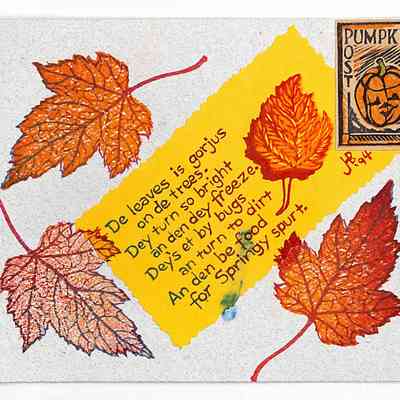 De leaves is gorjus
on de trees.
Dey turn so bright
an den dey freeze.
Dey's et by bugs
an turn to dirt
An den be food
for Springy spurt.
PUMPK
POST
'94